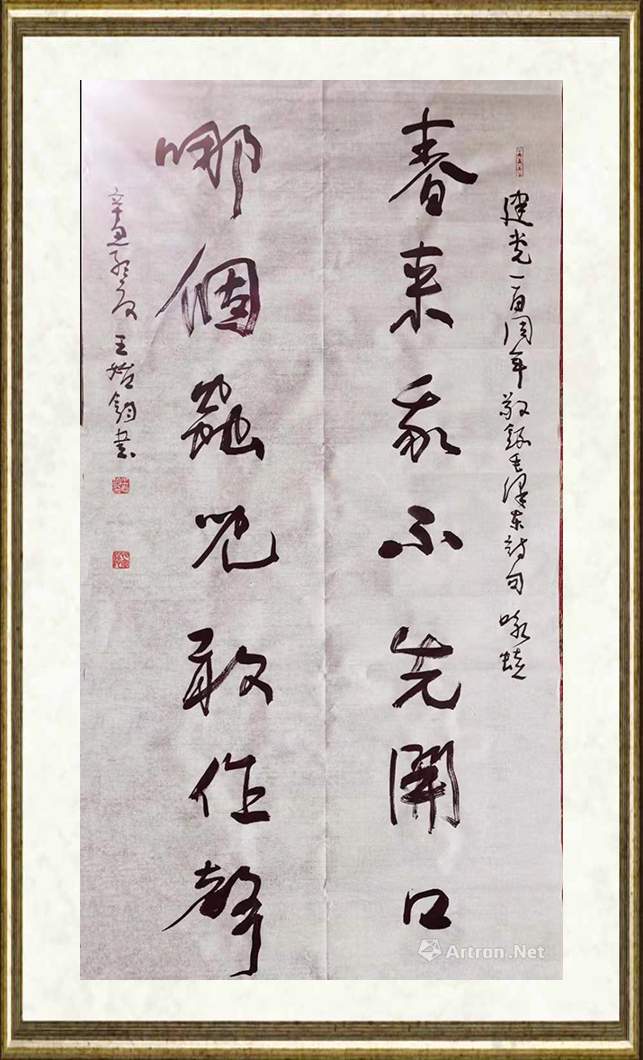 建党一百周年敬録毛澤东詩句 咏蛙
春来我不先開口
哪個蟲兒敢作聲
辛丑
王
鈞書
Artron.Net